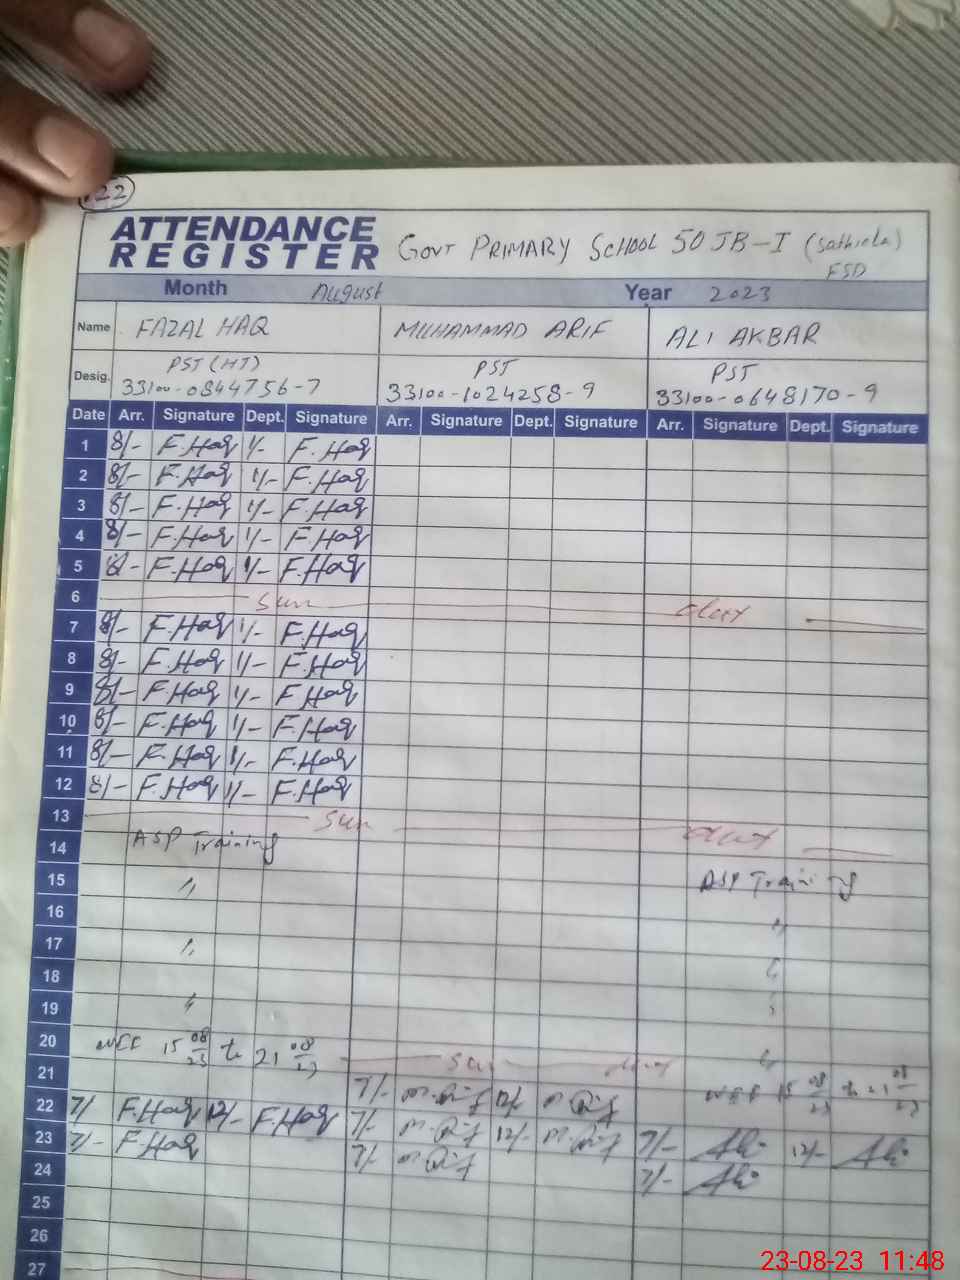 22
ATTENDANCE REGISTER GOVT PRIMARY SCHOOL 50 JB-I (Sathiala) FSD
Month August Year 2023
Name FAZAL HAQ MUHAMMAD ARIF ALI AKBAR
Desig. PST (HT) PST PST
33100-0844756-7 33100-1024258-9 33100-0648170-9
Date Arr. Signature Dept. Signature Arr. Signature Dept. Signature Arr. Signature Dept. Signature
1 8/- F.Haq 1/- F.Haq
2 8/- F.Haq 1/- F.Haq
3 8/- F.Haq 1/- F.Haq
4 8/- F.Haq 1/- F.Haq
5 8/- F.Haq 1/- F.Haq
6 Sun
7 8/- F.Haq 1/- F.Haq
8 8/- F.Haq 1/- F.Haq
9 8/- F.Haq 1/- F.Haq
10 8/- F.Haq 1/- F.Haq
11 8/- F.Haq 1/- F.Haq
12 8/- F.Haq 1/- F.Haq
13 Sun
14 ASP Training
15 " ASP Training
16 "
17 "
18 "
19 " "
20 15 08/23 to 21 08/23 Sun "
21 7/- M.Arif 12/- M.Arif 15 08/23 to 21 08/23
22 7/- F.Haq 12/- F.Haq 7/- M.Arif 12/- M.Arif 7/- Ali 12/- Ali
23 7/- F.Haq 7/- M.Arif 7/- Ali
24
25
26
27
23-08-23 11:48